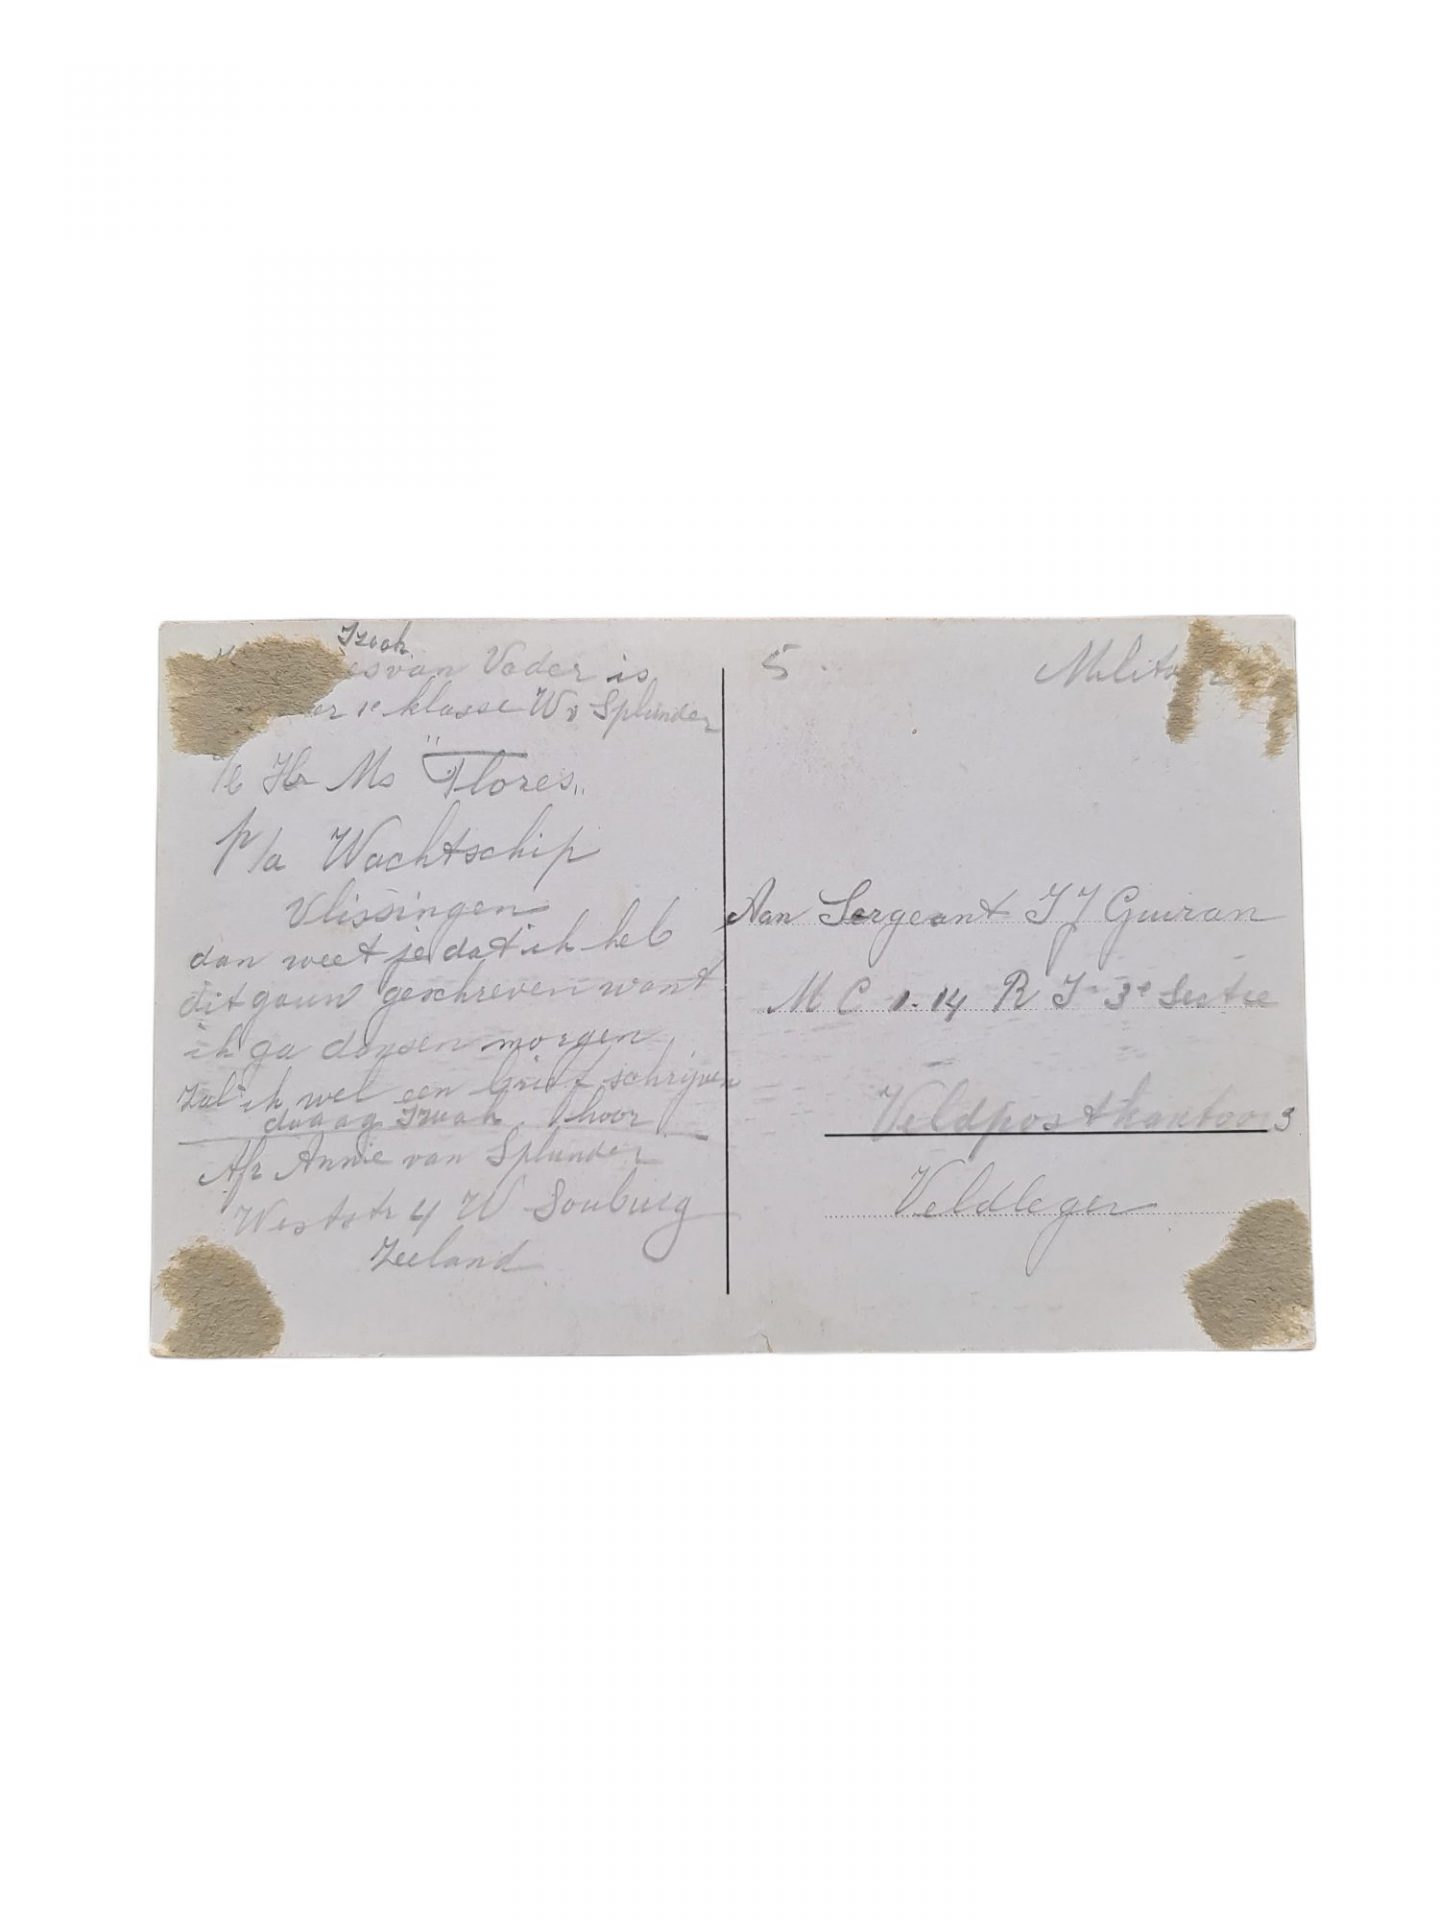 Izaak
van Vader is
1e klasse Wv Splunder
Hr Ms "Flores"
p/a Wachtschip
Vlissingen
dan weet je dat ik heb
dit gauw geschreven want
ik ga dansen morgen
zal ik wel een brief schrijven
daaag Izaak hoor
Afz Annie van Splunder
Weststr 4 W Souburg
Zeeland
5
Milita
Aan Sergeant I J Guiran
M C 1-14 R I 3e Sectie
Veldpostkantoor 3
Veldleger